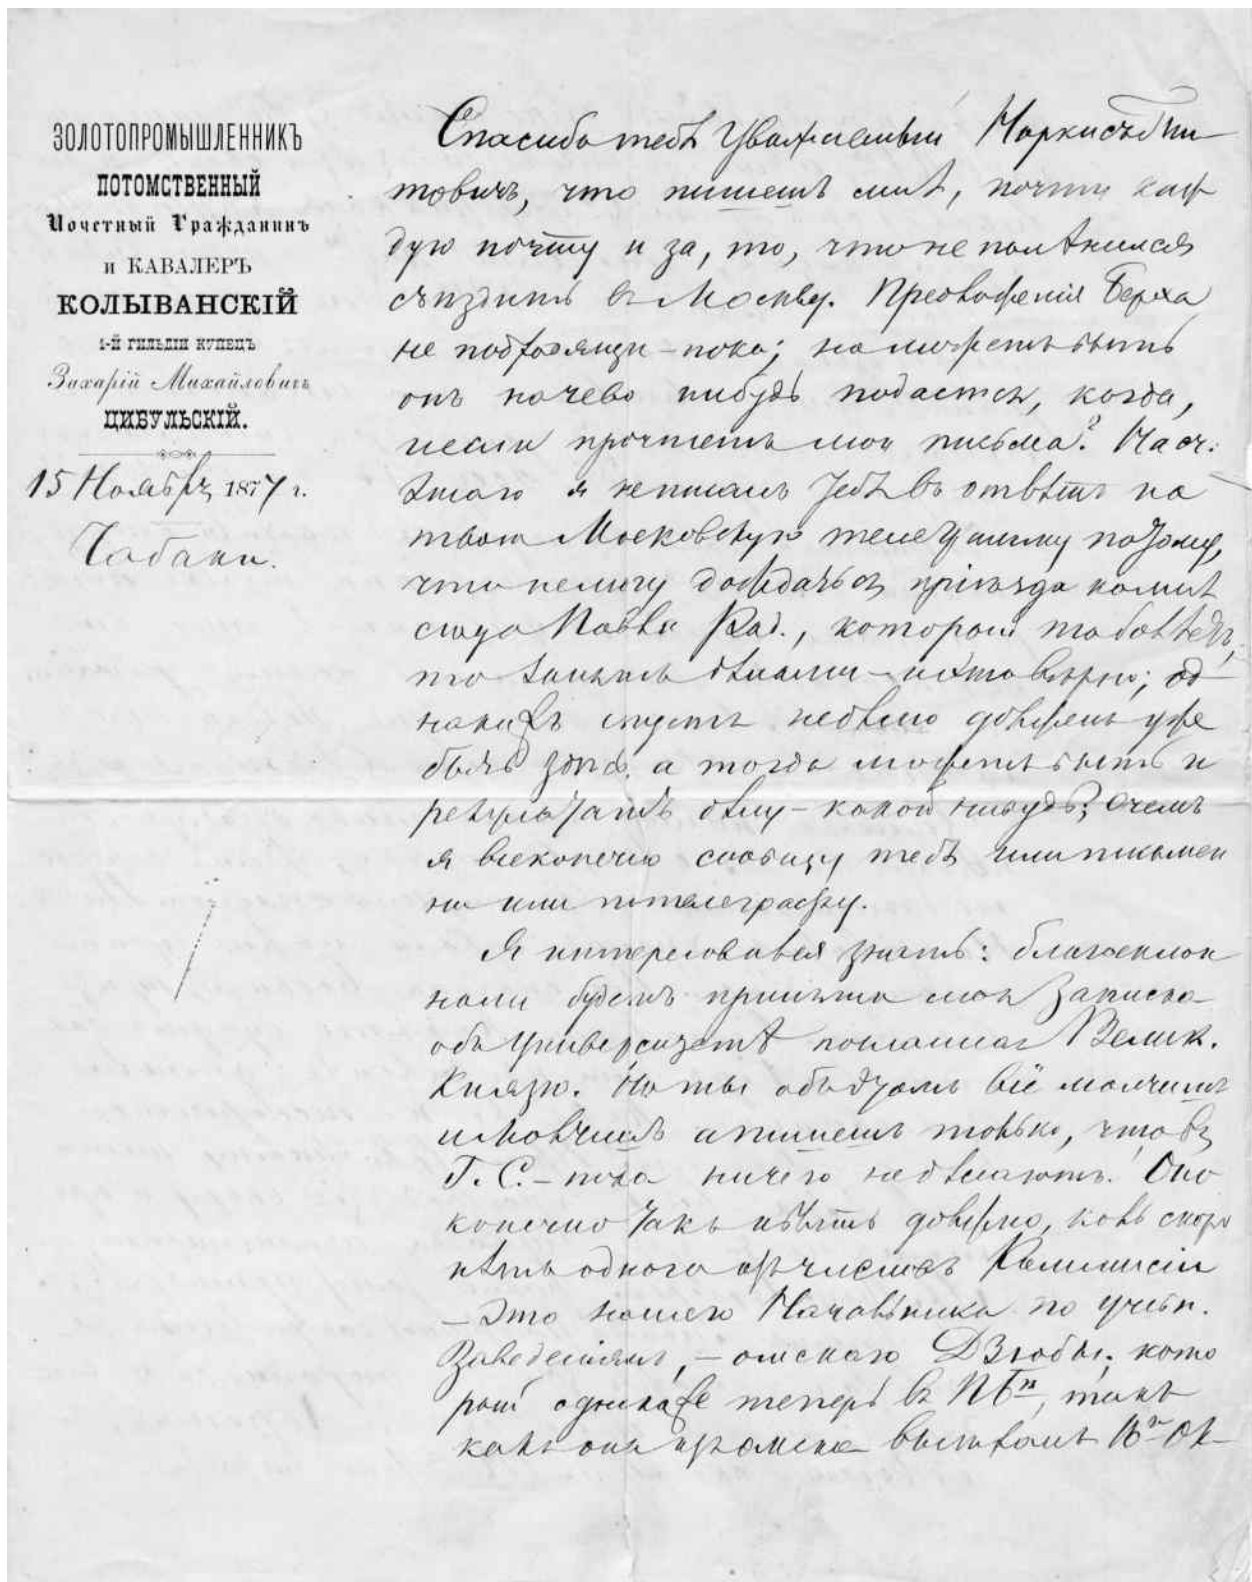 ЗОЛОТОПРОМЫШЛЕННИКЪ
ПОТОМСТВЕННЫЙ
Почетный Гражданинъ
и КАВАЛЕРЪ
КОЛЫВАНСКІЙ
1-й ГИЛЬДІИ КУПЕЦЪ
Захарій Михайловичъ
ЦИБУЛЬСКІЙ.
15 Ноября 1877 г.
Чабаки.
Спасибо тебѣ Уважаемый
товичъ, что пишешъ мнѣ, почти каж
дую почту и за, то, что не полѣнился
съѣздить въ Москву. Предложенія Берха
не подходящи – пока; но можетъ быть
онъ кочево нибудь подастся, когда,
прочтетъ мои письма? Насч:
этаго я неписалъ тебѣ въ отвѣтъ на
твою Московскую потому,
что немогу дождаться пріѣзда комнѣ
сюда Павла который
то занятъ дѣлами – вѣрно; од
накожъ спустя неделю долженъ уже
быть здѣсь, а тогда можетъ быть и
результатъ дѣлу – какой нибудь; очемъ
я всеконечно сообщу тебѣ или письмен
но или потелеграфу.
Я интересовался знать: благосклон
ноли будетъ принята моя Записка
объ Университетѣ посланная Велик.
Князю. Но ты объ этомъ всё молчишъ
и молчишъ а пишешъ только, что въ
Г. С. – пока ничего недѣлаютъ. Оно
конечно такъ и быть должно, коль скоро
нѣтъ одного изъ членовъ Коммисіи
– это нашего Начальника по учебн.
Заведеніямъ, – омскаго Дзюбы, кото
рый однакоже теперь въ Пбгѣ, такъ
какъ онъ изъ омска выѣхалъ 16го Ок–